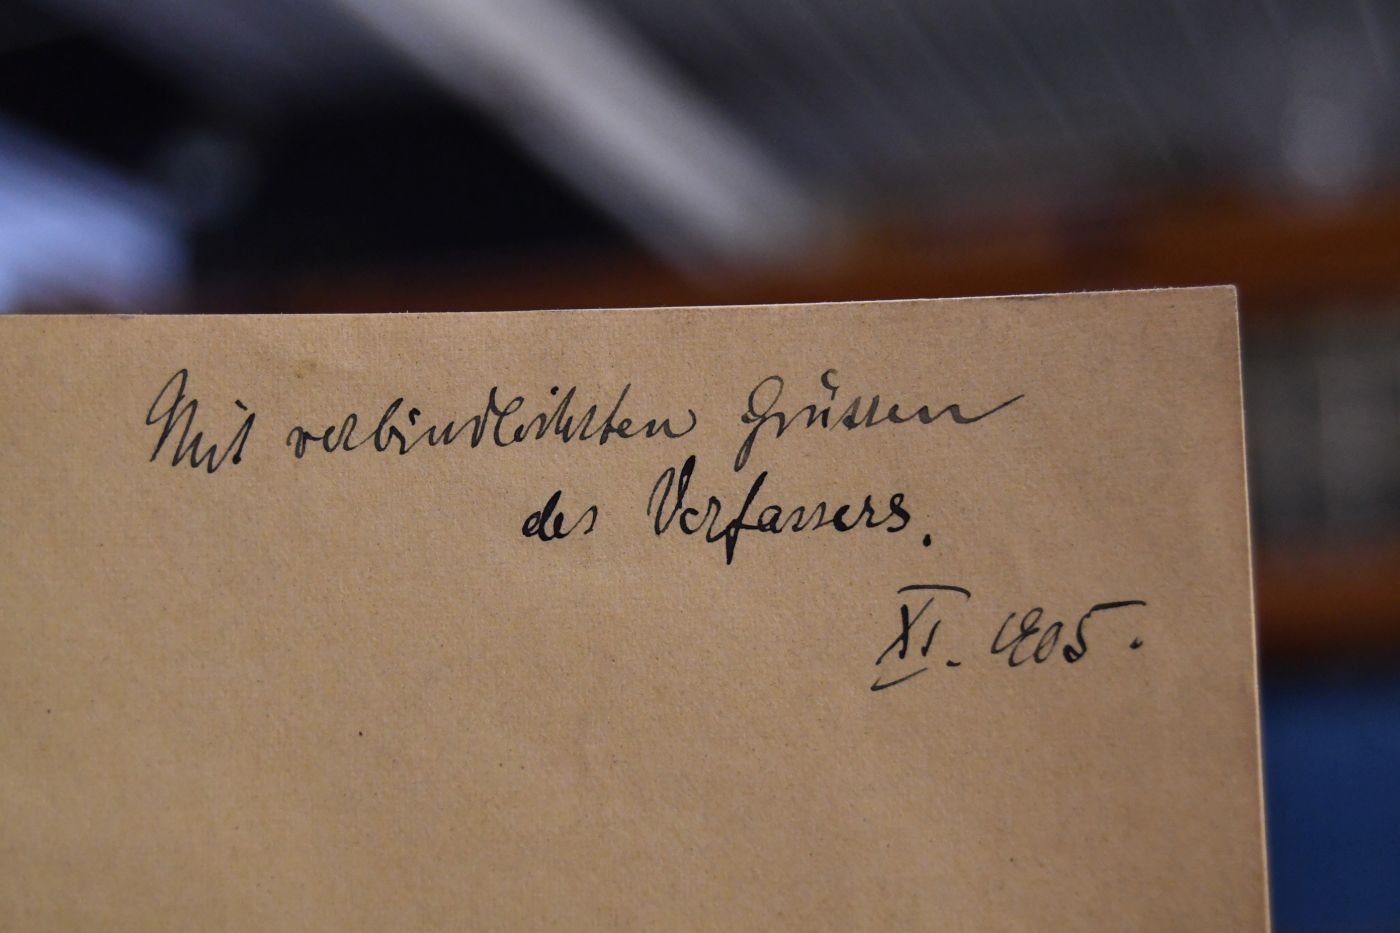 Mit verbindlichsten Grüssen
des Verfassers.
XI. 1905.